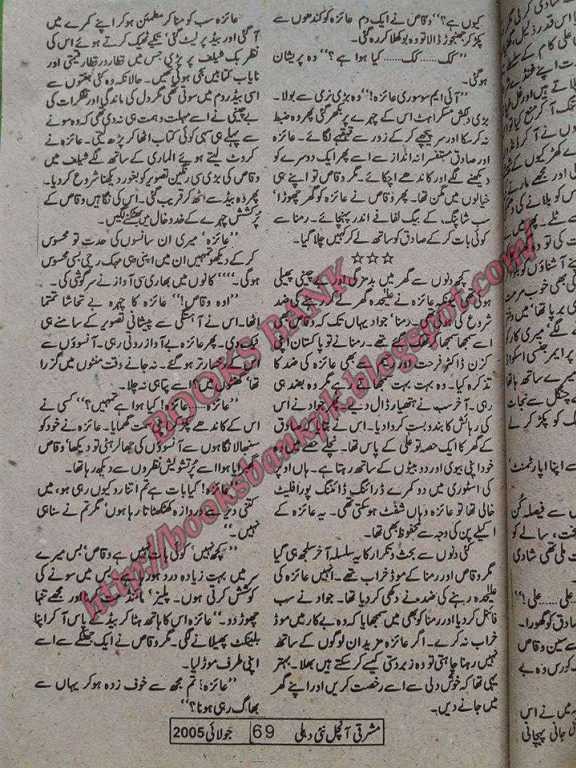 کیوں ہے؟” وقاص نے ایک دم عائزہ کو کندھوں سے
پکڑ کر جھنجھوڑ ڈالا تو وہ بوکھلا کر رہ گئی۔
“کک...... کک...... کیا ہوا ہے؟” وہ پریشان
ہوگئی۔
“آئی ایم سو سوری عائزہ!” وہ بڑی نرمی سے بولا۔
بڑی دلکش مسکراہٹ اس کے چہرے پر بکھر گئی پھر وہ ضبط
نہ کرسکا اور سر پیچھے کر کے زور سے قہقہے لگائے۔ عائزہ
اور صادق مستفسرانہ انداز سے اسے پھر ایک دوسرے کو
دیکھنے لگے اور کاندھے اچکائے۔ مگر وقاص تو اپنے ہی
خیالوں میں مگن تھا۔ پھر وقاص نے عائزہ کو گھر چھوڑا’
سب شاپنگ، بیگ لفافے اندر پہنچائے۔ رمنا سے
کوئی بات کر کے صادق کو ساتھ لے کر کہیں چلا گیا۔
☆☆☆
کچھ دنوں سے گھر میں بدمزگی اور بے چینی پھیلی
ہوئی تھی کیونکہ عائزہ نے علیحدہ گھر لینے کی ضد
شروع کی ہوئی تھی۔ رمنا’ جواد یہاں تک کہ وقاص بھی
اسے سمجھا سمجھا کر تھک گئے۔ رمنا نے تو پاکستان اپنی
کزن ڈاکٹر فرحت اور سے بھی عائزہ کی ضد کا
تذکرہ کیا۔ وہ بہت بہت سمجھاتے رہے مگر وہ بضد ہی
رہی۔ آخر سب نے ہتھیار ڈال دیے۔ جواد نے اس
کی رہائش کا بندوبست کردیا۔ اس نے صادق
کے گھر کا ایک حصہ تو علی کے پاس تھا۔ نچلے حصے میں وہ
خود اپنی بیوی اور دو بیٹوں کے ساتھ رہتا ہے۔ ہاں اوپر
کی اسٹوری میں دو کمرے ڈرائنگ ڈائننگ پورا فلیٹ
خالی تھا تو عائزہ وہاں شفٹ ہوسکتی تھی۔ یہ عائزہ کے
اکیلے پن کی وجہ سے محفوظ بھی تھا۔
کئی دنوں سے بحث و تکرار کا یہ سلسلہ آخر سلجھ ہی گیا
مگر وقاص اور رمنا کے موڈ خراب تھے۔ انہیں عائزہ کی
علیحدہ رہنے کی ضد نے دکھی کردیا تھا۔ جواد نے سب
قائل کرلیا اور رمنا کو بھی سمجھایا کہ وہ بے کار میں موڈ
خراب نہ کرے۔ اگر عائزہ مزید ان لوگوں کے ساتھ
نہیں رہنا چاہتی تو وہ زبردستی کیسے کرسکتے ہیں بھلا۔ بہتر
یہی تھا کہ خوش دلی سے اسے رخصت کریں اور اپنے گھر
میں جانے دیں۔
عائزہ سب کو منا کر مطمئن ہوکر اپنے کمرے میں
آگئی اور بیڈ پر لیٹ گئی’ تکیے ٹھیک کرتے ہوئے اس کی
نظر بک شیلف پر پڑی جس میں قطار در قطار قیمتی اور
نایاب کتابیں سجی ہوئی تھیں۔ حالانکہ وہ کئی ہفتوں سے
اسی بیڈروم میں سوتی تھی مگر دل کی ماندگی اور تفکرات کی
بے چینی نے اسے مہلت و ہمت ہی نہ دی تھی کہ وہ سونے
سے پہلے ہی سہی کوئی کتاب اٹھا کر پڑھ لیتی۔ عائزہ نے
کروٹ لیتے ہوئے الماری کے ساتھ لگے شیلف میں
وقاص کی بڑی سی رنگین تصویر کو بغور دیکھنا شروع کردیا۔
پھر وہ بیڈ سے اٹھ کر قریب گئی۔ اس کی نگاہیں وقاص کے
پرکشش چہرے کے خدوخال میں بھٹکنے لگیں۔
“عائزہ’ میری ان سانسوں کی حدت تو محسوس
کر کے دیکھو تمہیں ان میں اپنی ہی مہک رچی بسی محسوس
ہوگی۔” کانوں میں بھاری سی آواز نے سرگوشی کی۔
“اوہ وقاص!” عائزہ کا چہرہ بے تحاشا تمتما
اٹھا۔ اس نے آہستگی سے پیشانی تصویر کے سامنے ہی
ٹیک دی۔ پھر عائزہ بے آواز روتی رہی۔ آنسوؤں سے
اس کے رخسار تر ہوگئے۔ نہ جانے وقت منٹوں میں گزرا
تھا’ گھنٹوں میں اسے پتا ہی نہ چلا۔
“عائزہ...... عائزہ! کیا ہوا ہے تمہیں؟” کسی نے
اس کے کاندھے پر گھمایا۔ عائزہ نے خود کو
سنبھالا نگاہوں سے آنسوؤں کی جھالر ہٹی تو دیکھا’ وقاص
اسے پرتشویش نظروں سے دیکھ رہا تھا۔
“عائزہ! کیا بات ہے تم اتنا رو کیوں رہی ہو، میں
کتنی دیر سے دروازہ کھٹکھٹا رہا ہوں’ مگر تم نے سنا ہی
نہیں۔”
“کچھ نہیں’ کوئی بات نہیں ہے وقاص’ بس میرے
سر میں بہت زیادہ درد ہورہا ہے۔ بس میں سونے کی
کوشش کرتی ہوں۔ پلیز’ مائنڈ مت اور مجھے تنہا
چھوڑ دو۔” عائزہ اس کا ہاتھ ہٹا کر بیڈ کے پاس آکر اپنا
بلینکٹ پھیلانے لگی۔ مگر وقاص نے ایک جھٹکے سے اسے
اپنی طرف موڑ لیا۔
“عائزہ! تم مجھ سے خوف زدہ ہوکر یہاں سے
بھاگ رہی ہونا؟”
مشرقی آنچل نئی دہلی 69 جولائی 2005
BOOKS BANK
http://booksbankpk.blogspot.com/